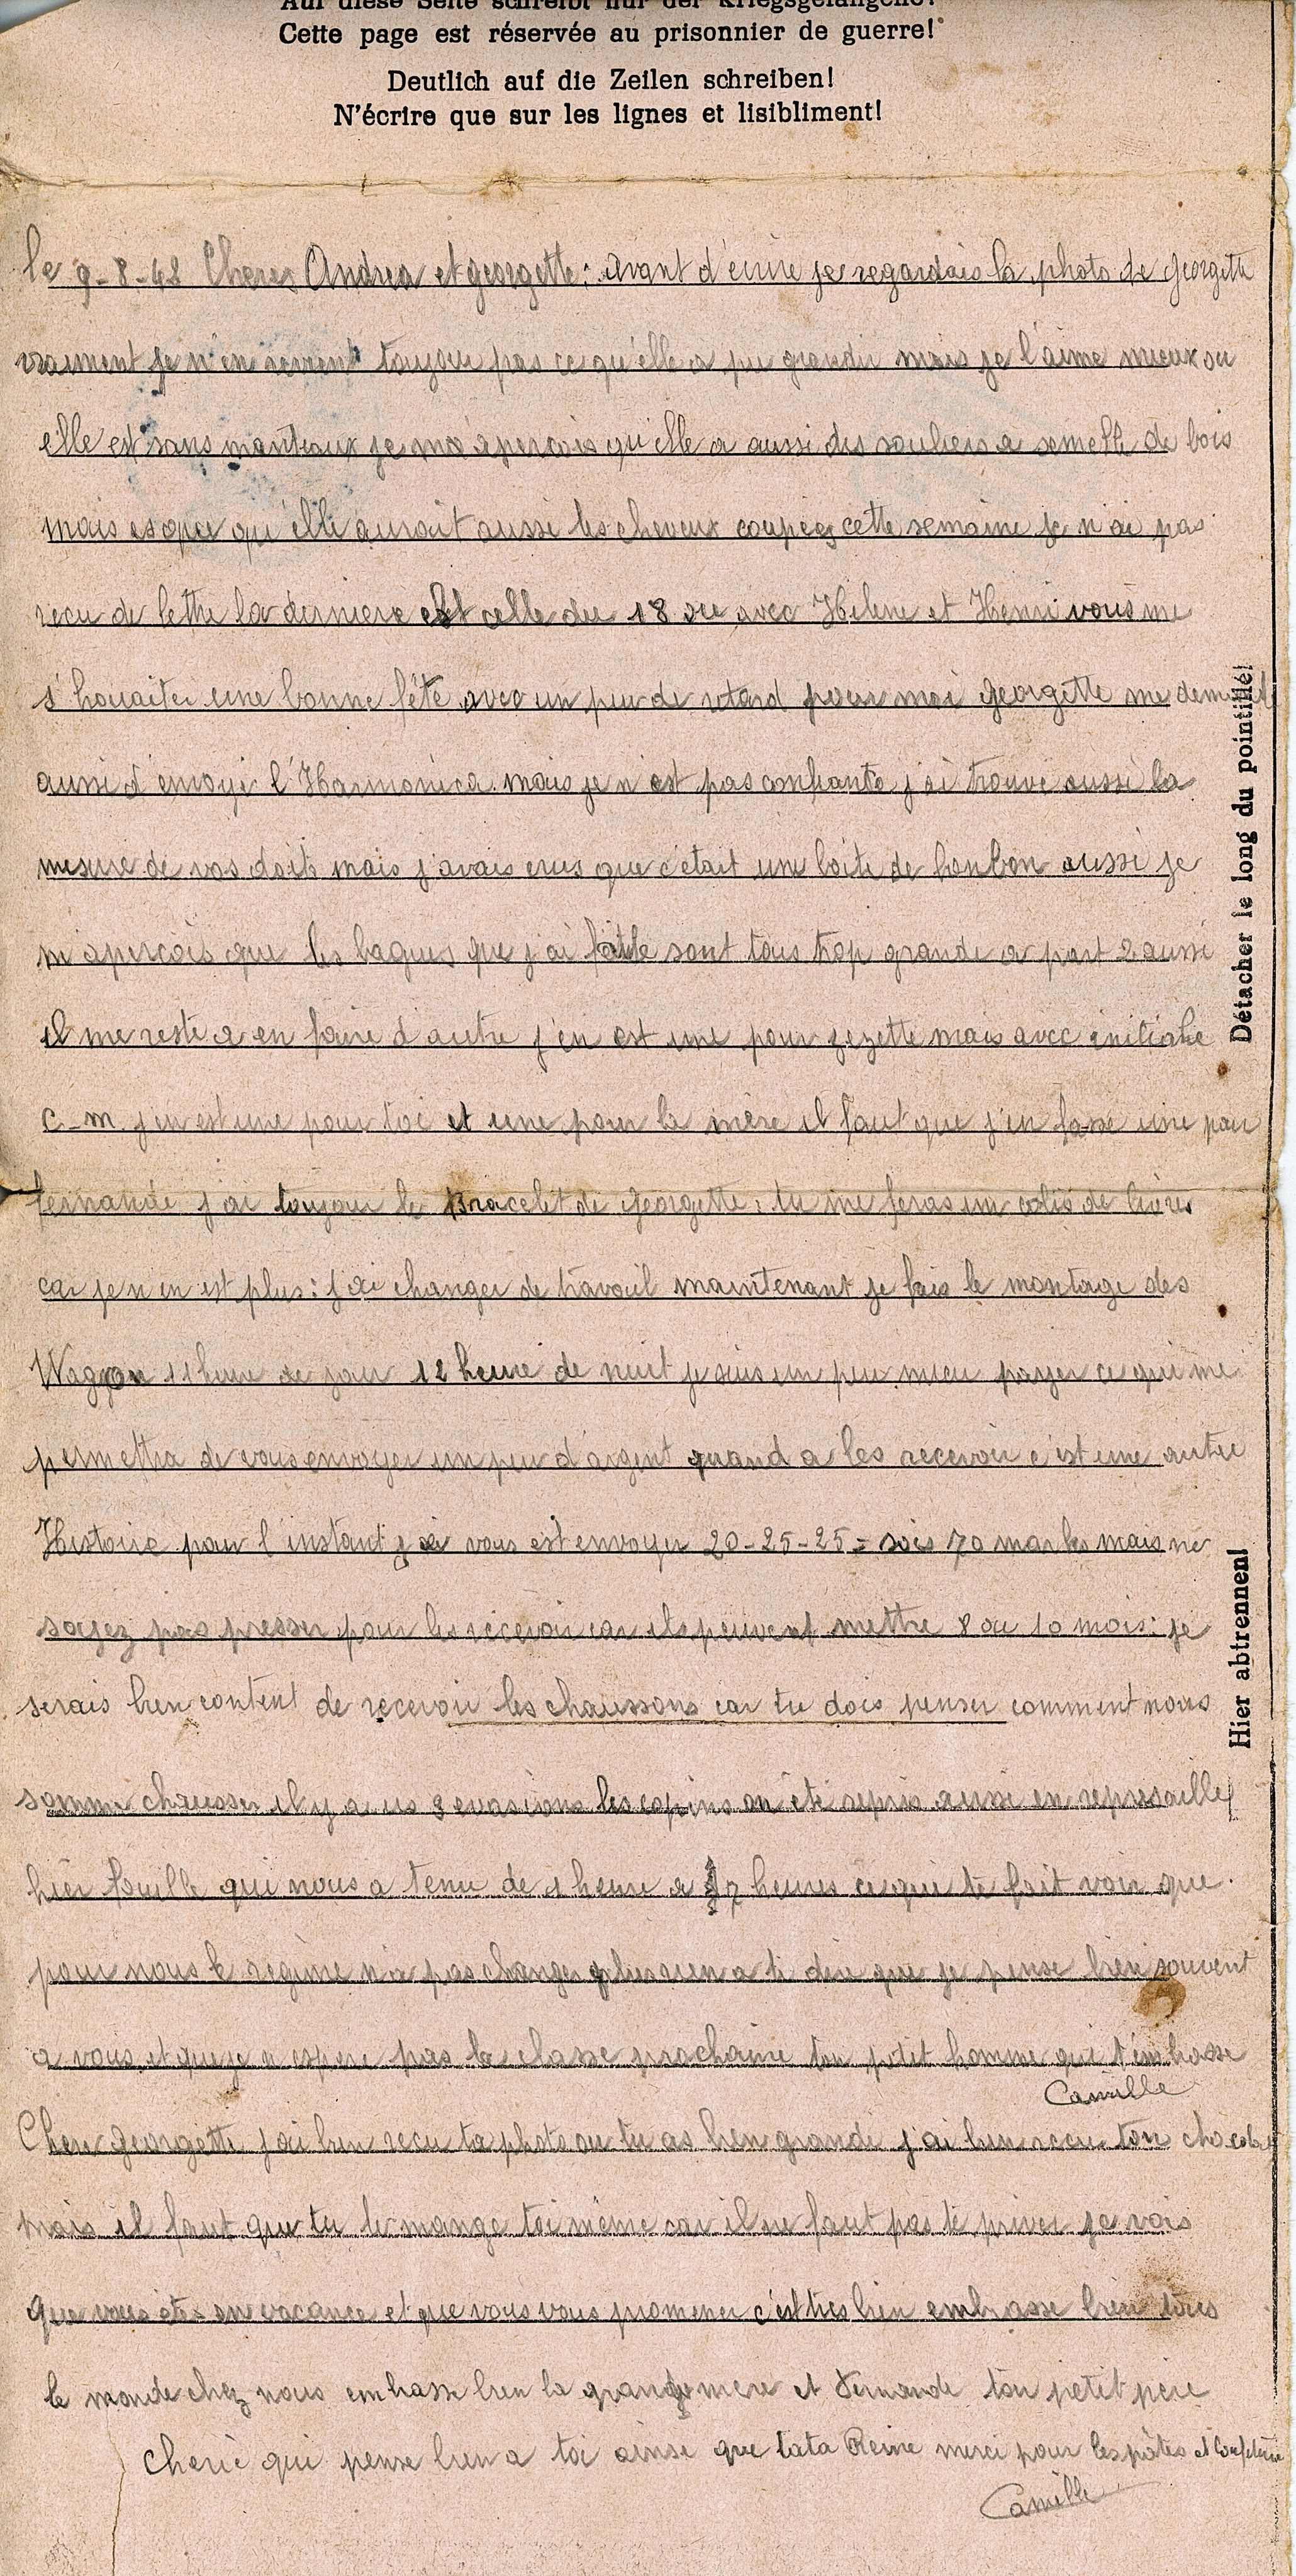 Auf diese Seite schreibt nur der Kriegsgefangene!
Cette page est réservée au prisonnier de guerre!
Deutlich auf die Zeilen schreiben!
N'écrire que sur les lignes et lisibliment!
le 9-8-42 Cheres Andrea et georgette: avant d'écrire je regardais la photo de Georgette
vraiment je n'en revient toujour pas ce qu'elle a pu grandir mais je l'aime mieux ou
elle est sans manteaux je m'apercois qu'elle a aussi des souliers a semelle de bois
mais esque qu'elle auroit aussi les cheveux coupées cette semaine je n'ai pas
recu de lettre la derniere est celle du 18 ou avec Helene et Henri vous me
s'houaiter une bonne fête avec un peu de retard pour moi Georgette me demande
aussi d'envoyé l'Harmonica mais je n'est pas confiante j'ai trouvé aussi la
mesure de vos doits mais j'avais crus que c'était une boite de bonbon aussi je
m'apercois que les bagues que j'ai faite sont tous trop grande a part 2 aussi
il me reste a en faire d'autre j'en est une pour zezette mais avec initiale
C-M. j'en est une pour toi et une pour la mère il faut que j'en fasse une pour
fernande j'ai toujour le Bracelet de Georgette: tu me feras un colis de livres
car je n'en est plus: j'ai changer de travail maintenant je fais le montage des
Wagon 11 heure de jour 12 heure de nuit je suis un peu mieu payer ce qui me
permettra de vous envoyer un peu d'argent quand a les recevoir c'est une autre
Histoire pour l'instant j'ai vous est envoyer 20-25-25= sois 70 marks mais ne
soyez pas presser pour les recevoir car ils peuvent mettre 8 ou 10 mois: je
serais bien content de recevoir les chaussons car tu dois penser comment nous
somme chausser il y a us 3 evasions les copins on été repris aussi en represailles
hier fouille qui nous a tenu de 1 heure a 7 heures ce qui te fait voir que
pour nous le régime n'a pas changer plus rien a te dire que je pense bien souvent
a vous et que je n'espere pas la classe prochaine ton petit homme qui t'embrasse
Camille
Chere Georgette j'ai bien recu ta photo ou tu as bien grandé j'ai bien recu ton chocolat
mais il faut que tu le mange toi même car il ne faut pas te priver je vois
que vous êtes en vacance et que vous vous promener c'est tres bien embrasse bien tous
le monde chez nous embrasse bien la grandmere et Fernande ton petit père
cherie qui pense bien a toi ainse que tata Reine merci pour les pâtes et confiture
Camille
Détacher le long du pointillé!
Hier abtrennen!